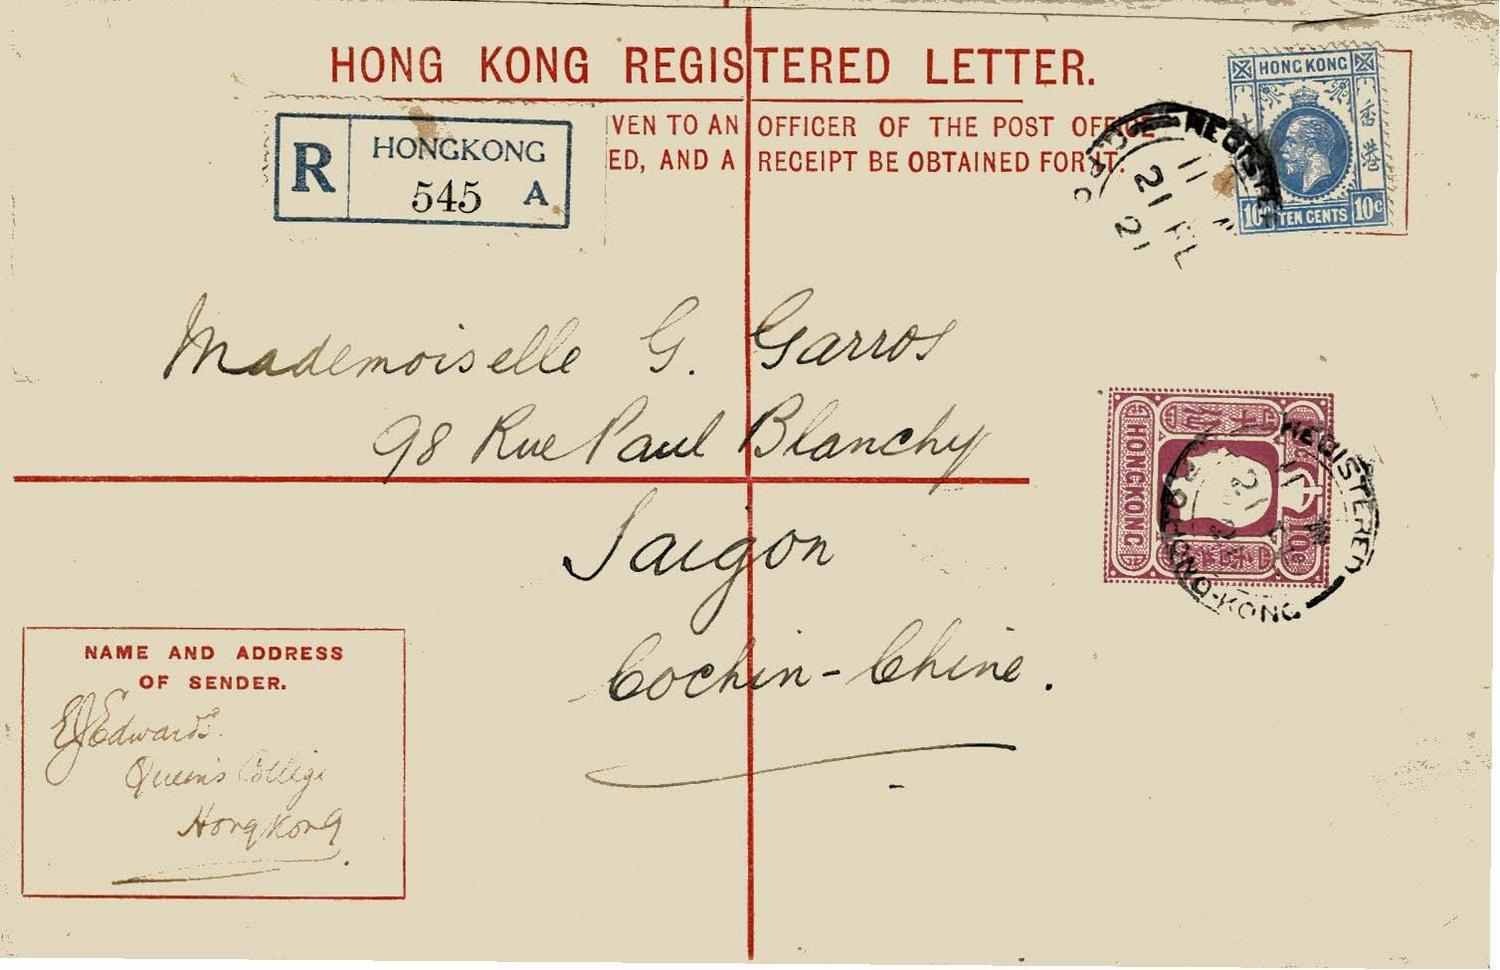 HONG KONG REGISTERED LETTER.
VEN TO AN OFFICER OF THE POST OFFICE
ED, AND A RECEIPT BE OBTAINED FOR IT.
R HONGKONG
545 A
HONG KONG
香港
10c TEN CENTS 10c
11
21
21
Mademoiselle G. Garros
98 Rue Paul Blanchy
Saigon
Cochin-Chine.
HONGKONG
10c
REGISTERED
HONG-KONG
21
NAME AND ADDRESS
OF SENDER.
EJ Edwards.
Queen's College
Hong Kong.